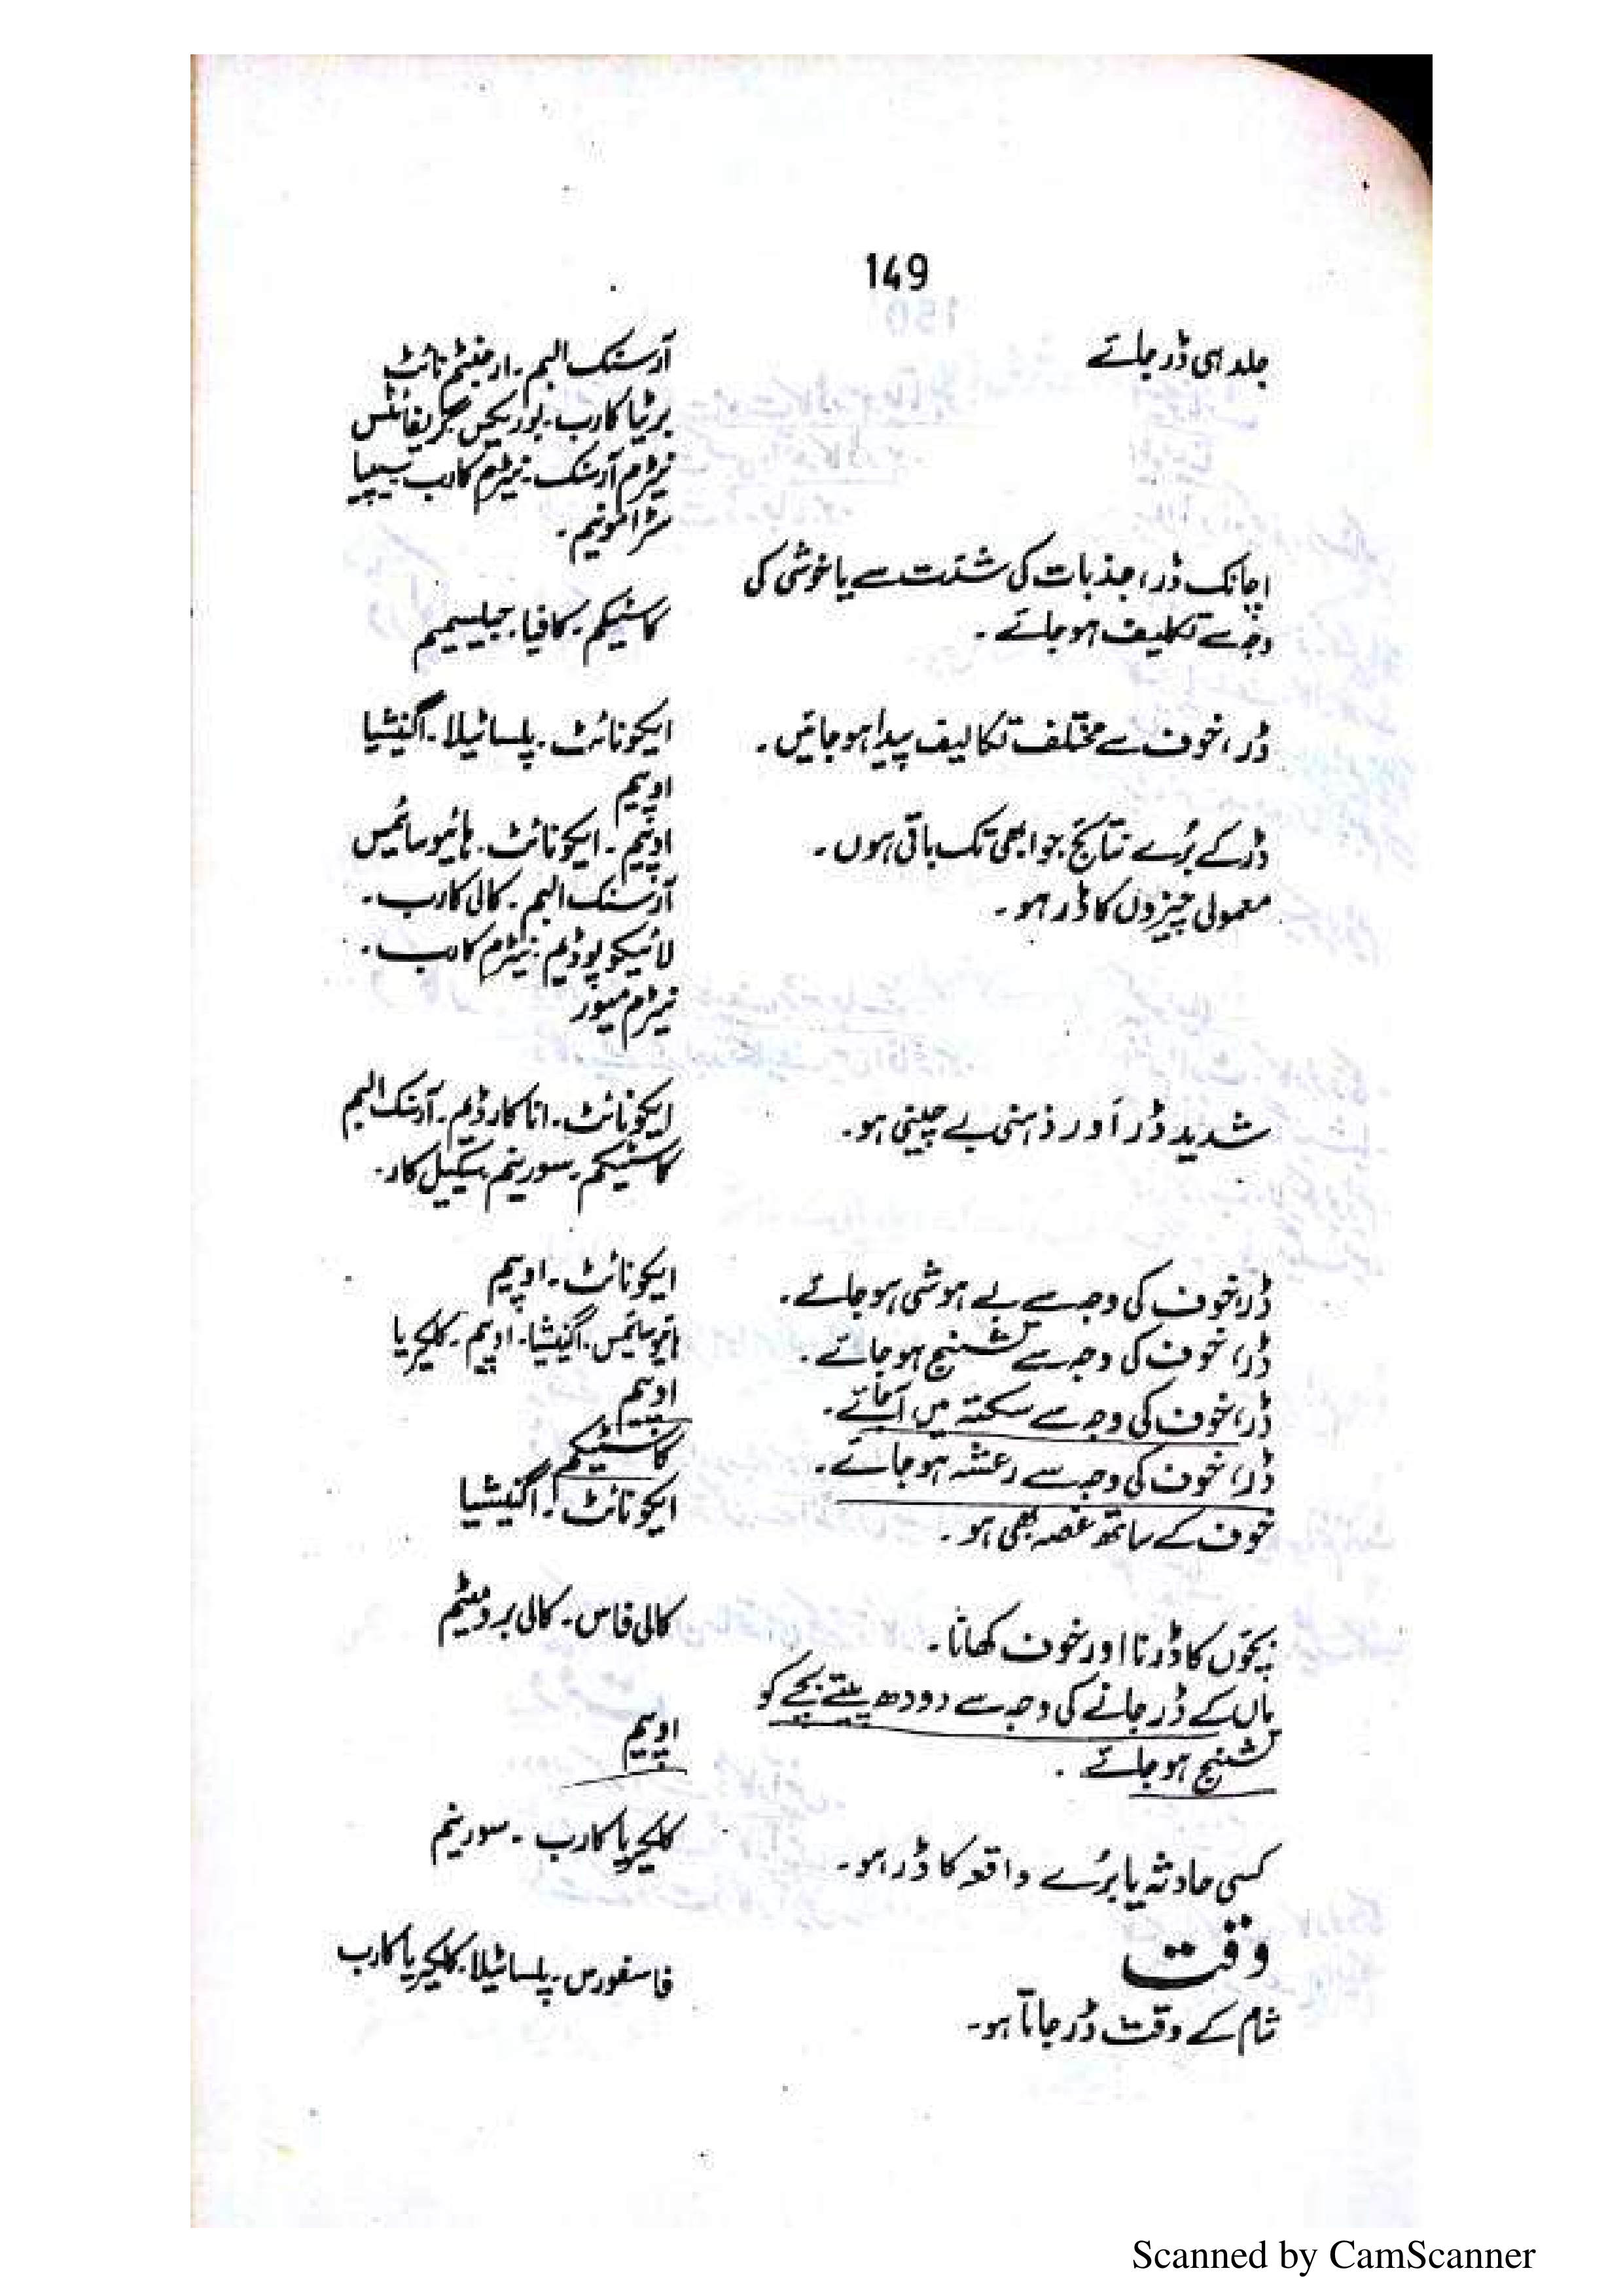 149
جلد ہی ڈر جائے
آرسنک البم۔ ارجنٹم نائٹ
برٹیا کارب۔ بوریکس گریفائٹس
نیٹرم آرسنک۔ نیٹرم کارب سیپیا
سٹرامونیم۔
اچانک ڈر، جذبات کی شدّت سے یا خوشی کی
وجہ سے تکلیف ہو جائے۔
کاسٹیکم۔ کافیا۔ جیلسیمیم
ڈر، خوف سے مختلف تکالیف پیدا ہو جائیں۔
ایکونائٹ۔ پلساٹیلا۔ اگنیشیا
اوپیم
ڈر کے بُرے نتائج جو ابھی تک باقی ہوں۔
اوپیم۔ ایکونائٹ۔ ہائیوسائمس
معمولی چیزوں کا ڈر ہو۔
آرسنک البم۔ کالی کارب۔
لائیکوپوڈیم۔ نیٹرم کارب۔
نیٹرم میور
شدید ڈر اور ذہنی بے چینی ہو۔
ایکونائٹ۔ اناکارڈیم۔ آرسنک البم
کاسٹیکم۔ سورینم سیکیل کار۔
ڈر، خوف کی وجہ سے بے ہوشی ہو جائے۔
ایکونائٹ۔ اوپیم
ڈر، خوف کی وجہ سے تشنج ہو جائے۔
ہائیوسائمس۔ اگنیشیا۔ اوپیم۔ کلکیریا
ڈر، خوف کی وجہ سے سکتہ میں آ جائے۔
اوپیم
ڈر، خوف کی وجہ سے رعشہ ہو جائے۔
کاسٹیکم
خوف کے ساتھ غصہ بھی ہو۔
ایکونائٹ۔ اگنیشیا
بچوں کا ڈرنا اور خوف کھانا۔
کالی فاس۔ کالی برومیٹم
ماں کے ڈر جانے کی وجہ سے دودھ پیتے بچے کو
تشنج ہو جائے۔
اوپیم
کسی حادثہ یا بُرے واقعہ کا ڈر ہو۔
کلکیریا کارب۔ سورینم
وقت
شام کے وقت ڈر جاتا ہو۔
فاسفورس۔ پلساٹیلا۔ کلکیریا کارب
Scanned by CamScanner